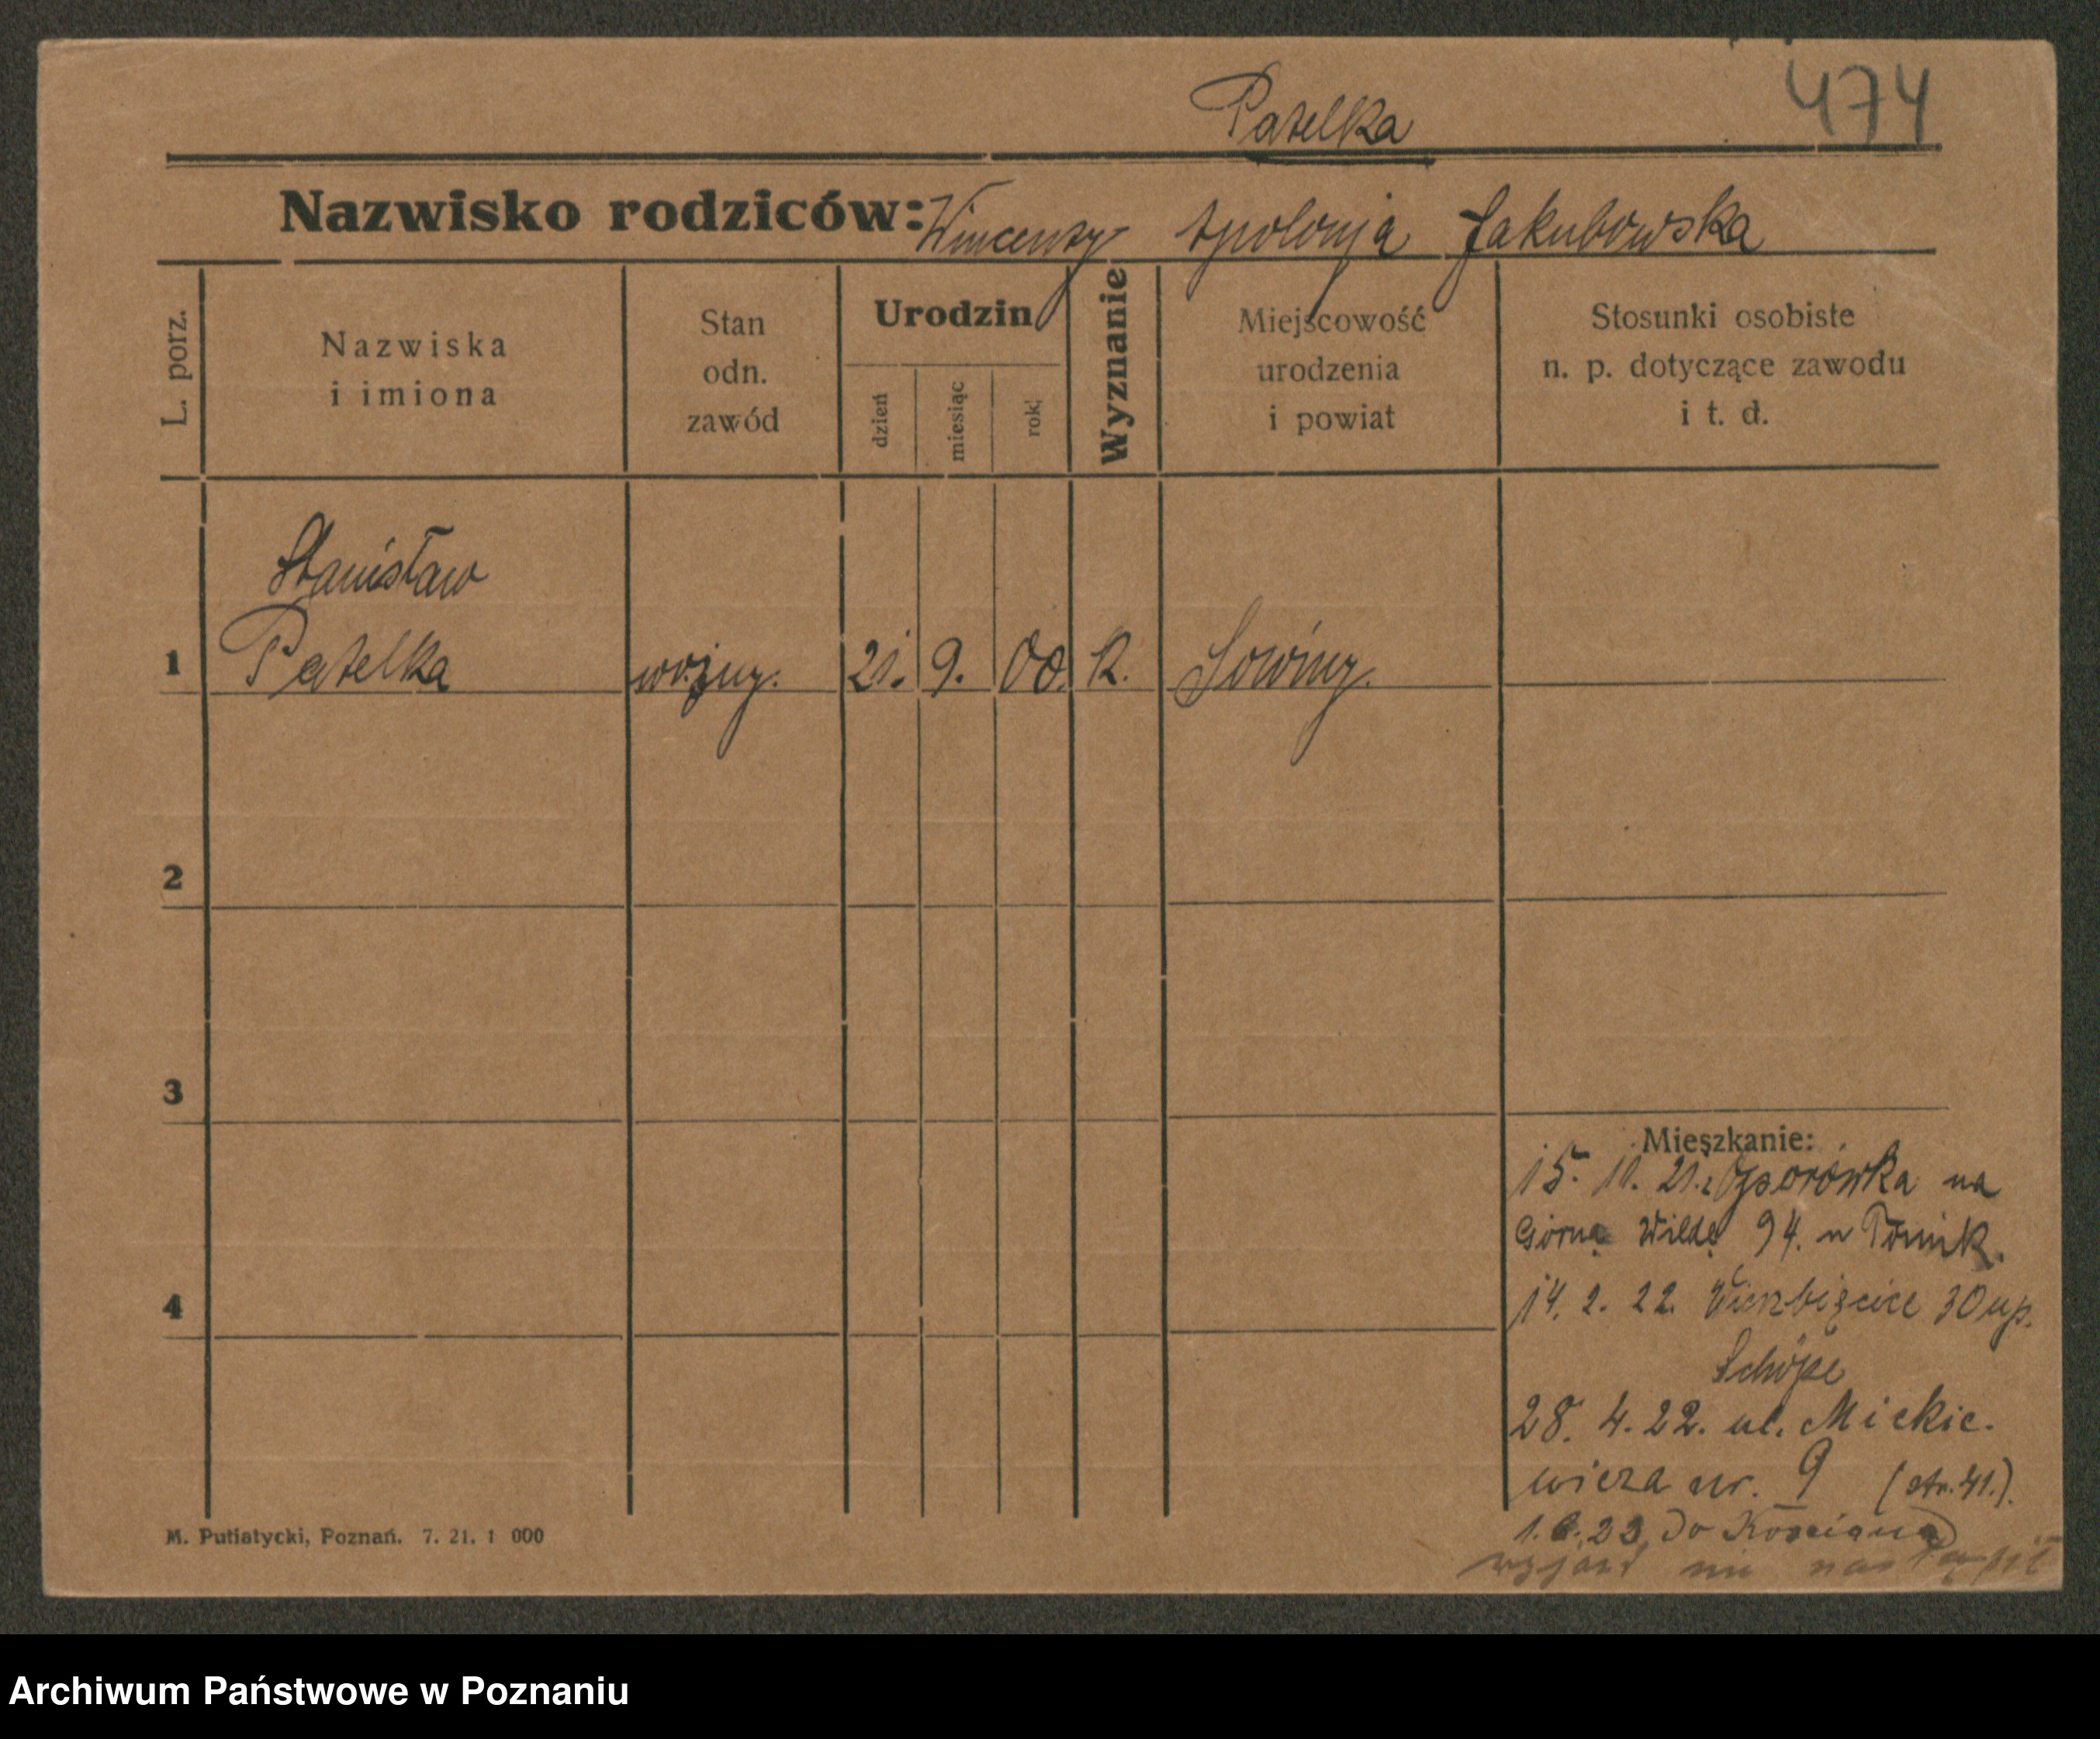 474
Patelka
Nazwisko rodziców: Wincenty Apolonja Jakubowska
L. porz.
Nazwiska
i imiona
Stan
odn.
zawód
Urodzin
dzień
miesiąc
rok
Wyznanie
Miejscowość
urodzenia
i powiat
Stosunki osobiste
n. p. dotyczące zawodu
i t. d.
Stanisław
1 Patelka woźny. 21. 9. 00. K. Sowiny.
2
3
4
Mieszkanie:
15. 11. 21. z na
Górną Wildę 94. u
14. 2. 22. Wierzbięcice 30 up.
28. 4. 22. ul. Mickie-
wicza nr. 9 (str. 41.).
1. 6. 23 do Kościana
wyjazd nie nastąpił
M. Putiatycki, Poznań. 7. 21. 1 000
Archiwum Państwowe w Poznaniu